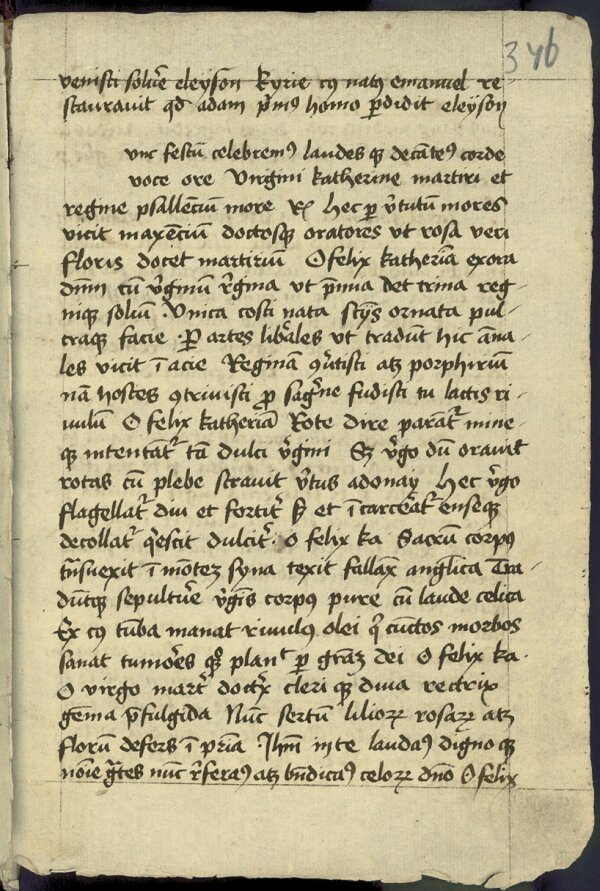 346
venisti solu̅e eleyson Kyrie cꝰ natꝰ emanuel re-
stauravit qd adam p̅mꝰ homo ꝑdidit eleyson
vnc festu̅ celebremꝰ laudes qꝫ deca̅tetꝰ corde
voce ore Virgini katherine martiri et
regine psallenciu̅ more Hec ꝑ v̅tutu̅ mores
vicit maxenciu̅ doctosqꝫ oratores vt rosa veri
floris docet martiriu̅ O felix katheri̅a exora
dn̅m cu̅ v̅gi̅nu̅ r̅gi̅na vt p̅mia det trina reg-
niqꝫ soliu̅ · Vnica costi nata ornata pul-
craqꝫ facie · Ꝑ artes lib̅ales vt tradu̅t hic a̅na-
les vicit i̅ acie Regina̅ ꝯv̅tisti atqꝫ porphiriu̅
na̅ hostes ꝯtrivisti ꝓ sag̅ne fudisti tu lactis ri-
uulu̅ O felix katheri̅a Rote dire para̅t̉ mine-
qꝫ intenta̅t̉ ta̅ dulci v̅gini Sꝫ v̅go du̅ orauit
rotas cu̅ plebe stravit v̅tus adonay Hec v̅go
flagellat̉ diu et fortit̉ et i̅ carce̅at̉ enseqꝫ
decollat̉ q̅escit dulcit̉ · O felix ka Sacru̅ corpꝰ
tn̅suexit i̅ mo̅teꝫ syna texit fallanx anglica Tra-
du̅tqꝫ sepultu̅e v̅gi̅s corpꝰ pure cu̅ laude celica
Ex cꝰ tu̅ba manat riuulus olei q̅ cu̅ctos morbos
sanat tumo̅es plan̅t ꝑ gra̅ꝫ dei O felix ka ·
O virgo mart̉ doct̉x cleri qꝫ diua rectrix
ge̅ma p̅fulgida Nu̅c sertu̅ lilioꝝ rosaꝝ atqꝫ
floru̅ defers i̅ p̅ria · Ihm̅ in te laudaꝰ dig̅no qꝫ
no̅ie g̅tes nu̅c r̅feraꝰ atqꝫ bn̅dicaꝰ celoꝝ dn̅o O felix